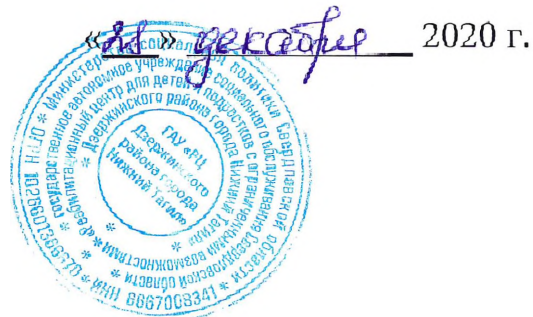 «21» декабря 2020 г.
* Министерство социальной политики Свердловской области * ИНН 6667008341 * ОГРН
* государственное автономное учреждение социального обслуживания Свердловской области
* «Реабилитационный центр для детей и подростков с ограниченными возможностями
* Дзержинского района города Нижний Тагил» *
ГАУ «РЦ
Дзержинского
района города
Нижний Тагил»